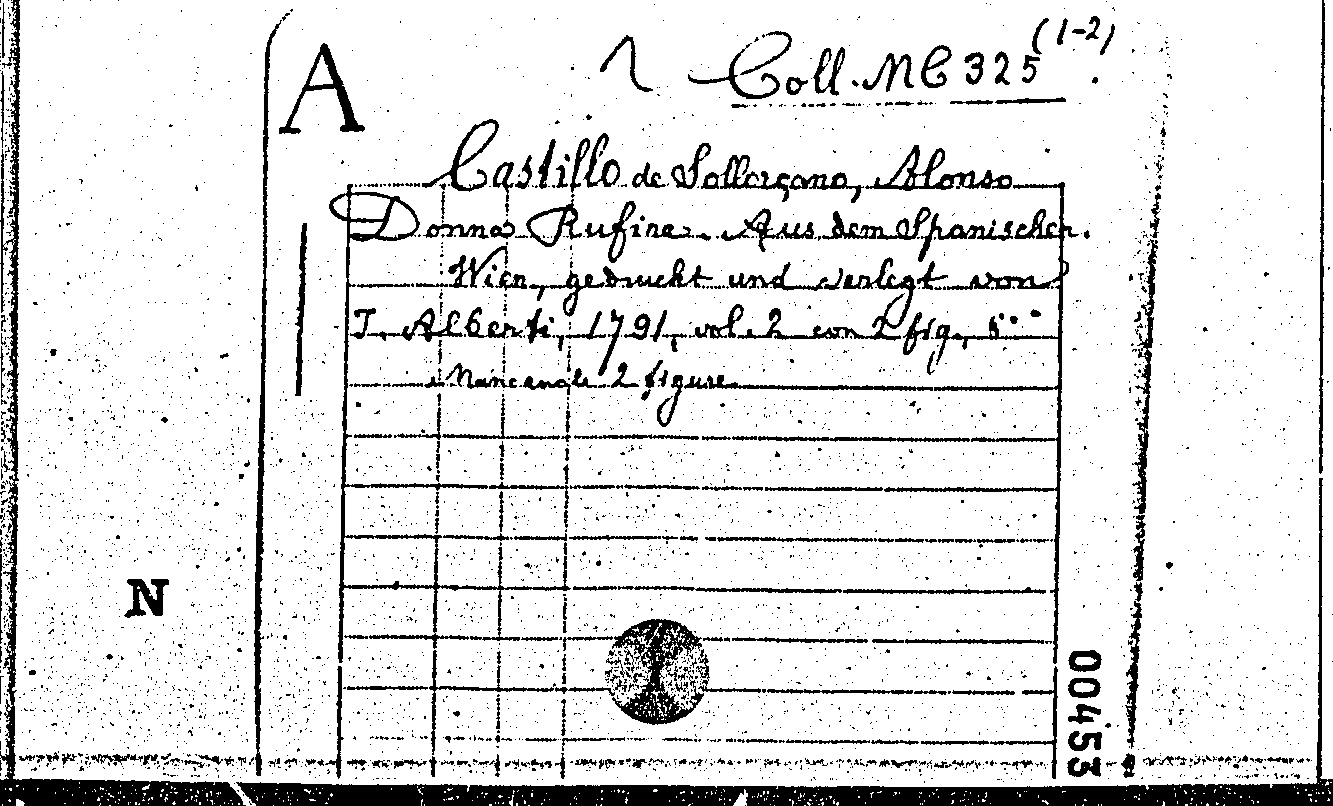 A
Coll. MC 325 (1-2).
Castillo de Sollorçano, Alonso
Donna Rufina. Aus dem Spanischen.
Wien, gedruckt und verlegt von
I. Alberti, 1791, vol. 2 con 2 fig., 8°
Mancano le 2 figure.
N
00453